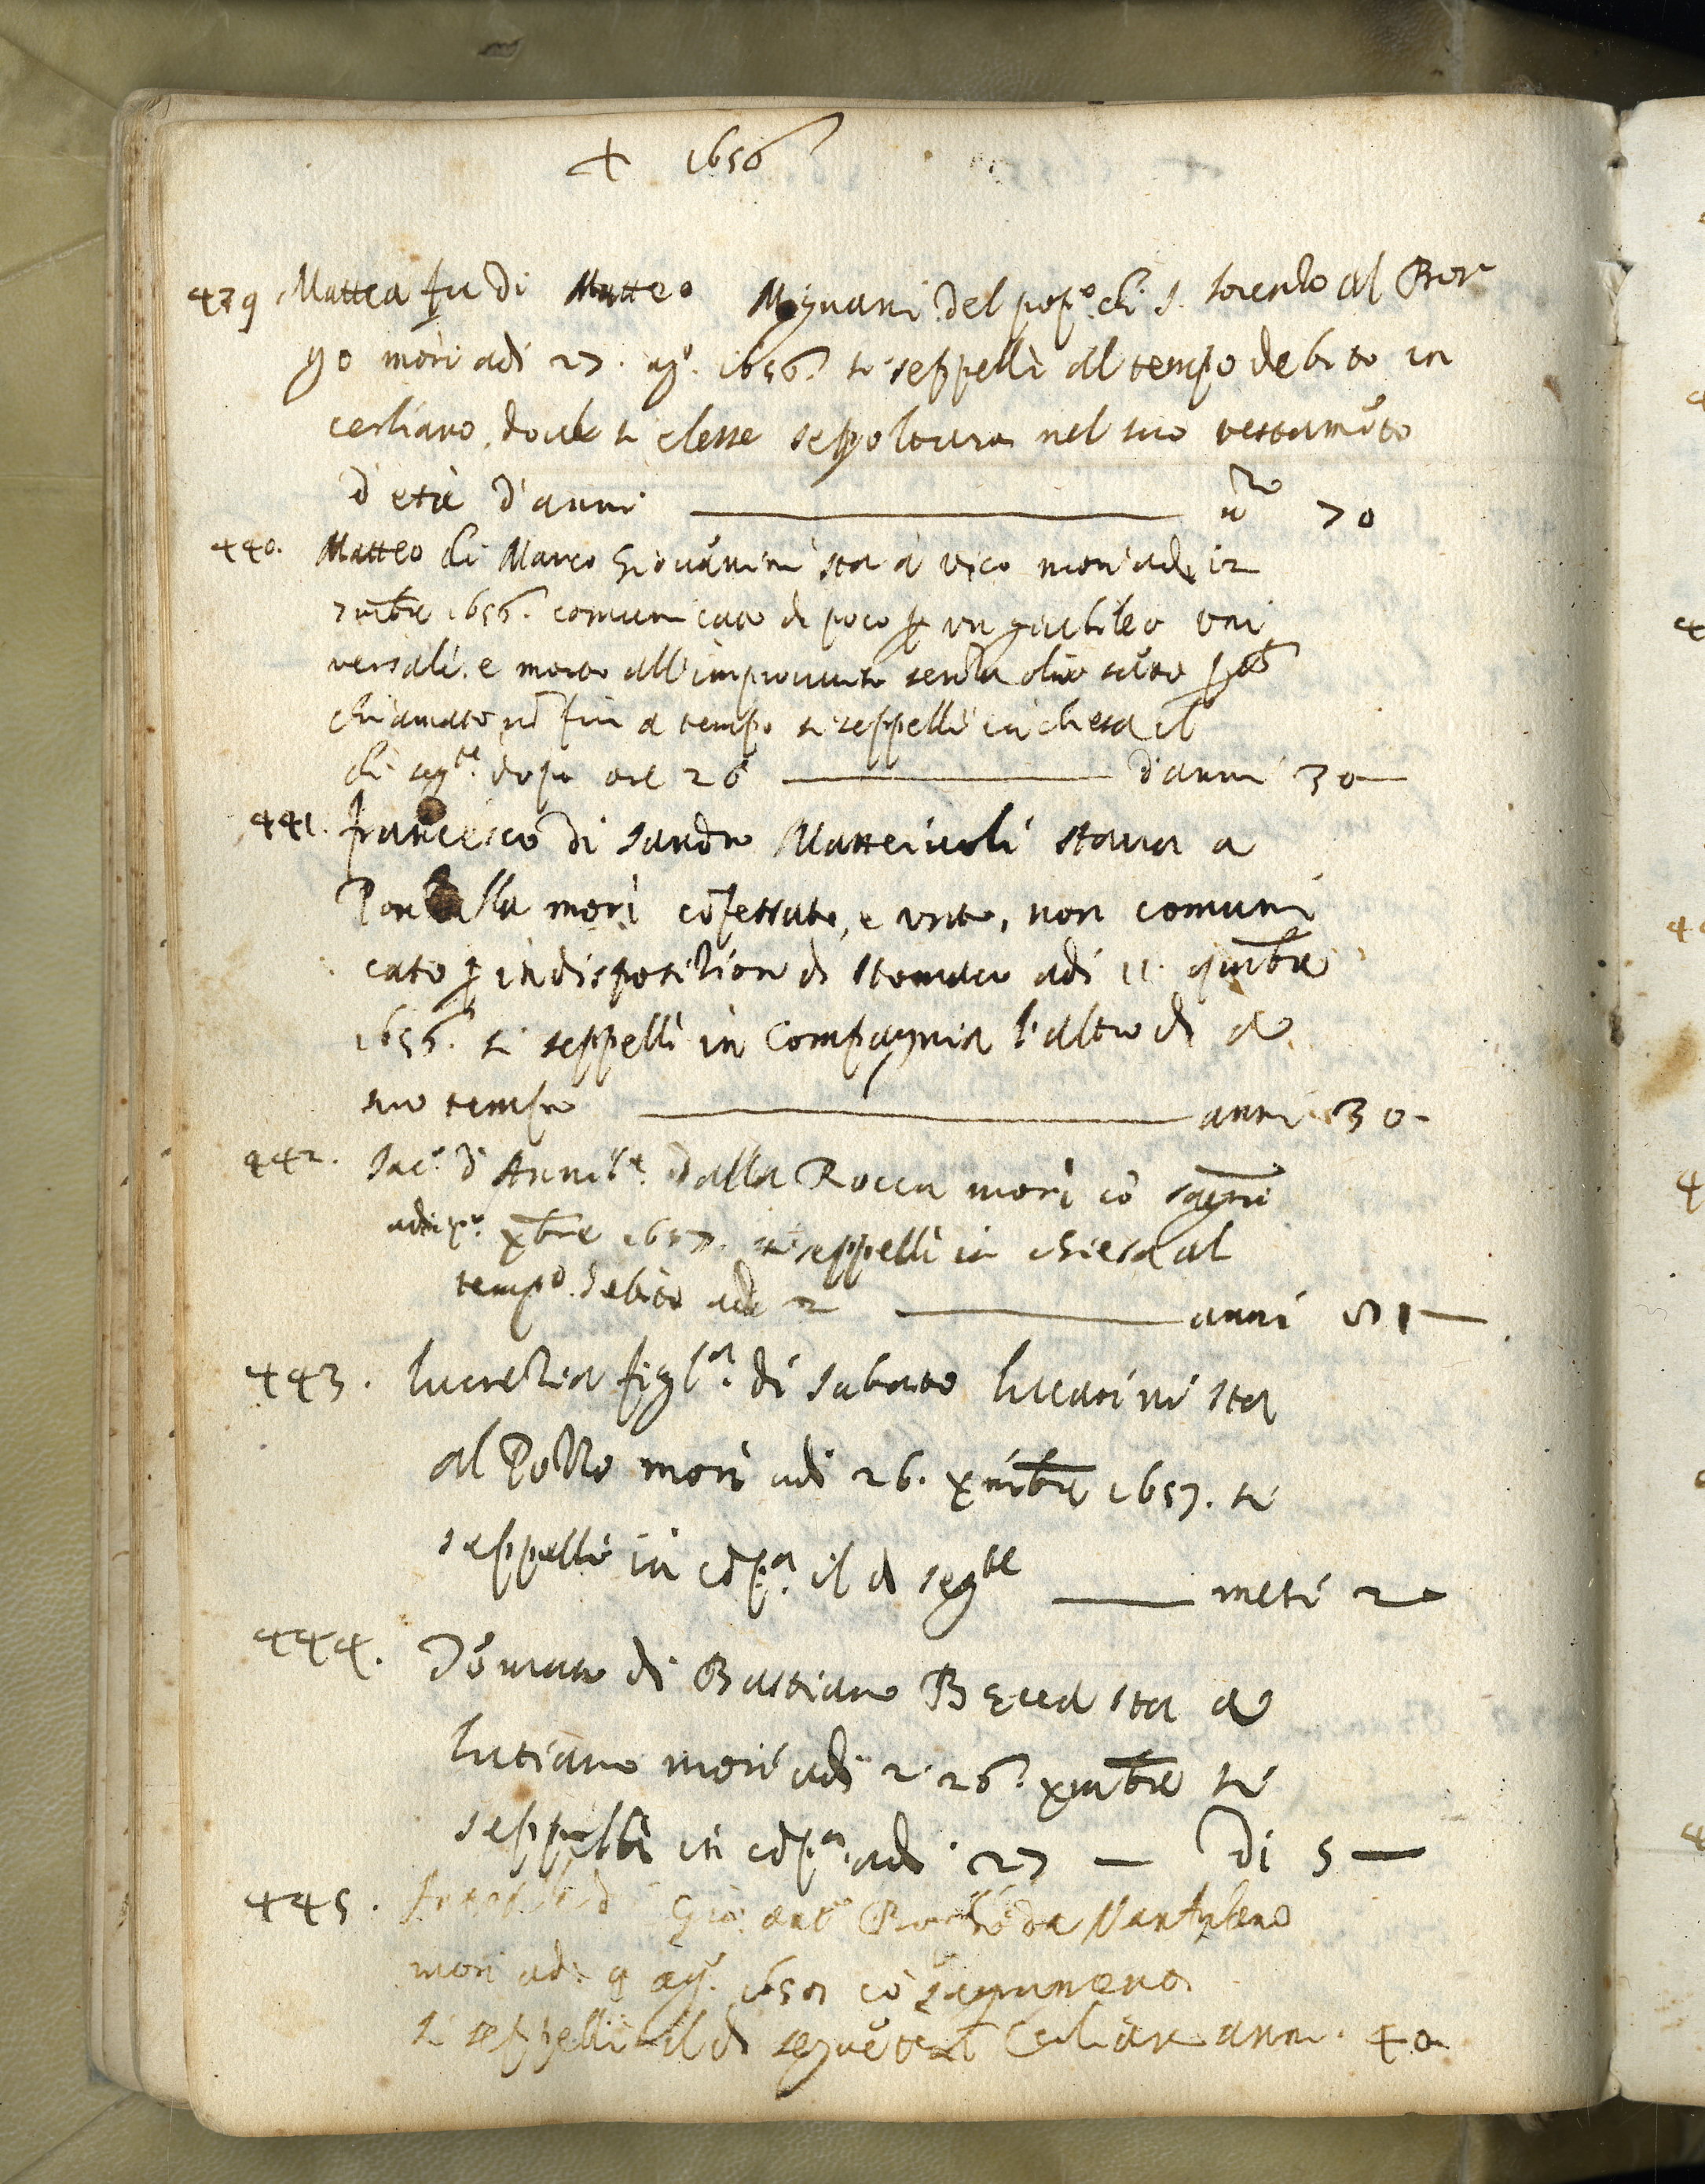 + 1656
439 Mattea fu di Matteo Mignani del pop.o di S. Lorenzo al Bor
go morì adi 27. ag.o 1656. si seppellì al tempo debito in
cerliano, doue si elesse sepoltura nel suo testamẽto
d'età d'anni ——— 70
440. Matteo di Marco Giouãnini sta à vico morì adi 12
7mbre 1656. comunicato di poco ꝑ un giubileo uni
versali. e morto all'improuuiso senza olio sãto
chiamato nõ fui a tempo si seppellì in chiesa il
di seg.te dopo ore 26 ——— d'anni 30—
441. francesco di Sandro Matteiuoli staua a
morì cõfessato, e unto, non comuni
cato ꝑ indispositione di stomaco adi 11. 9mbre
1656. si seppellì in Compagnia l'altro di a
suo tempo ——— anni 30-
442. Jac.o d'Annib.e dalla Rocca morì cõ sagri
adi p.o xbre 1657. si seppellì in chiesa al
tempo debito adi 2 ——— anni 51—
443. lucrezia figl.a di Sabato lucarini sta
al Pozzo morì adi 26. xmbre 1657. si
seppellì in cõp.a il di seg.te —— mesi 2—
444. Dõnato di Bastiano Becca sta a
lutiano morì adi 2 26. xmbre si
seppellì in cõp.a adi 27 — Di 5—
445. Gio: ant.o da
morì adi 9 ag.o cõ
si seppellì il di seguẽte anni. 40